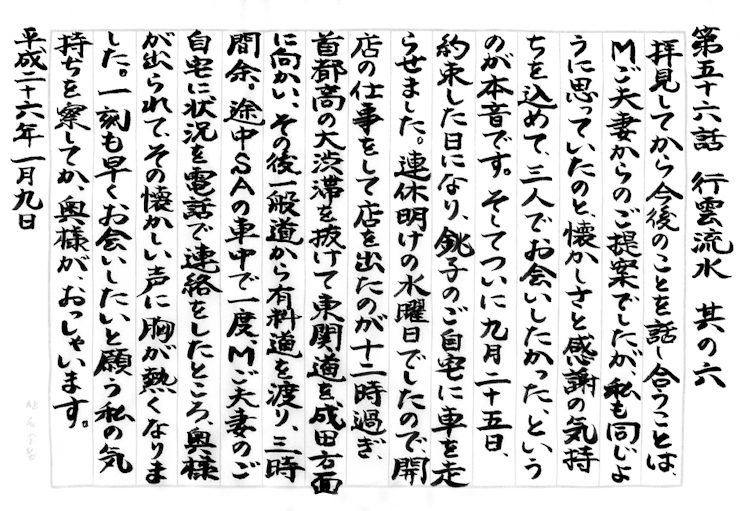 第五十六話　行雲流水　其の六
拝見してから今後のことを話し合うことは、
Mご夫妻からのご提案でしたが、私も同じよ
うに思っていたのと、懐かしさと感謝の気持
ちを込めて、三人でお会いしたかった、という
のが本音です。そしてついに九月二十五日、
約束した日になり、銚子のご自宅に車を走
らせました。連休明けの水曜日でしたので、開
店の仕事をして店を出たのが十二時過ぎ、
首都高の大渋滞を抜けて東関道を、成田方面
に向かい、その後一般道から有料道を渡り、三時
間余。途中SAの車中で一度、Mご夫妻のご
自宅に状況を電話で連絡をしたところ、奥様
が出られて、その懐かしい声に胸が熱くなりま
した。一刻も早くお会いしたいと願う私の気
持ちを察してか、奥様が、おっしゃいます。
平成二十六年一月九日